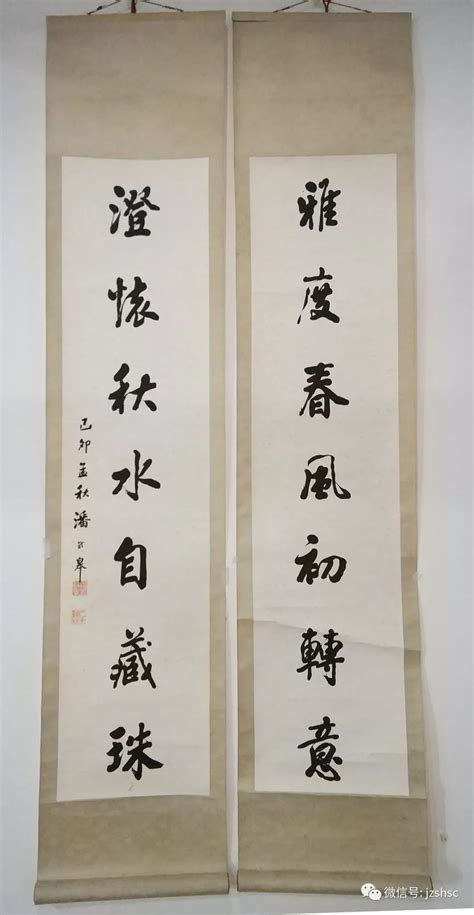 雅度春風初轉意
澄懷秋水自藏珠
己卯孟秋潘齡皋
微信号: jzshsc